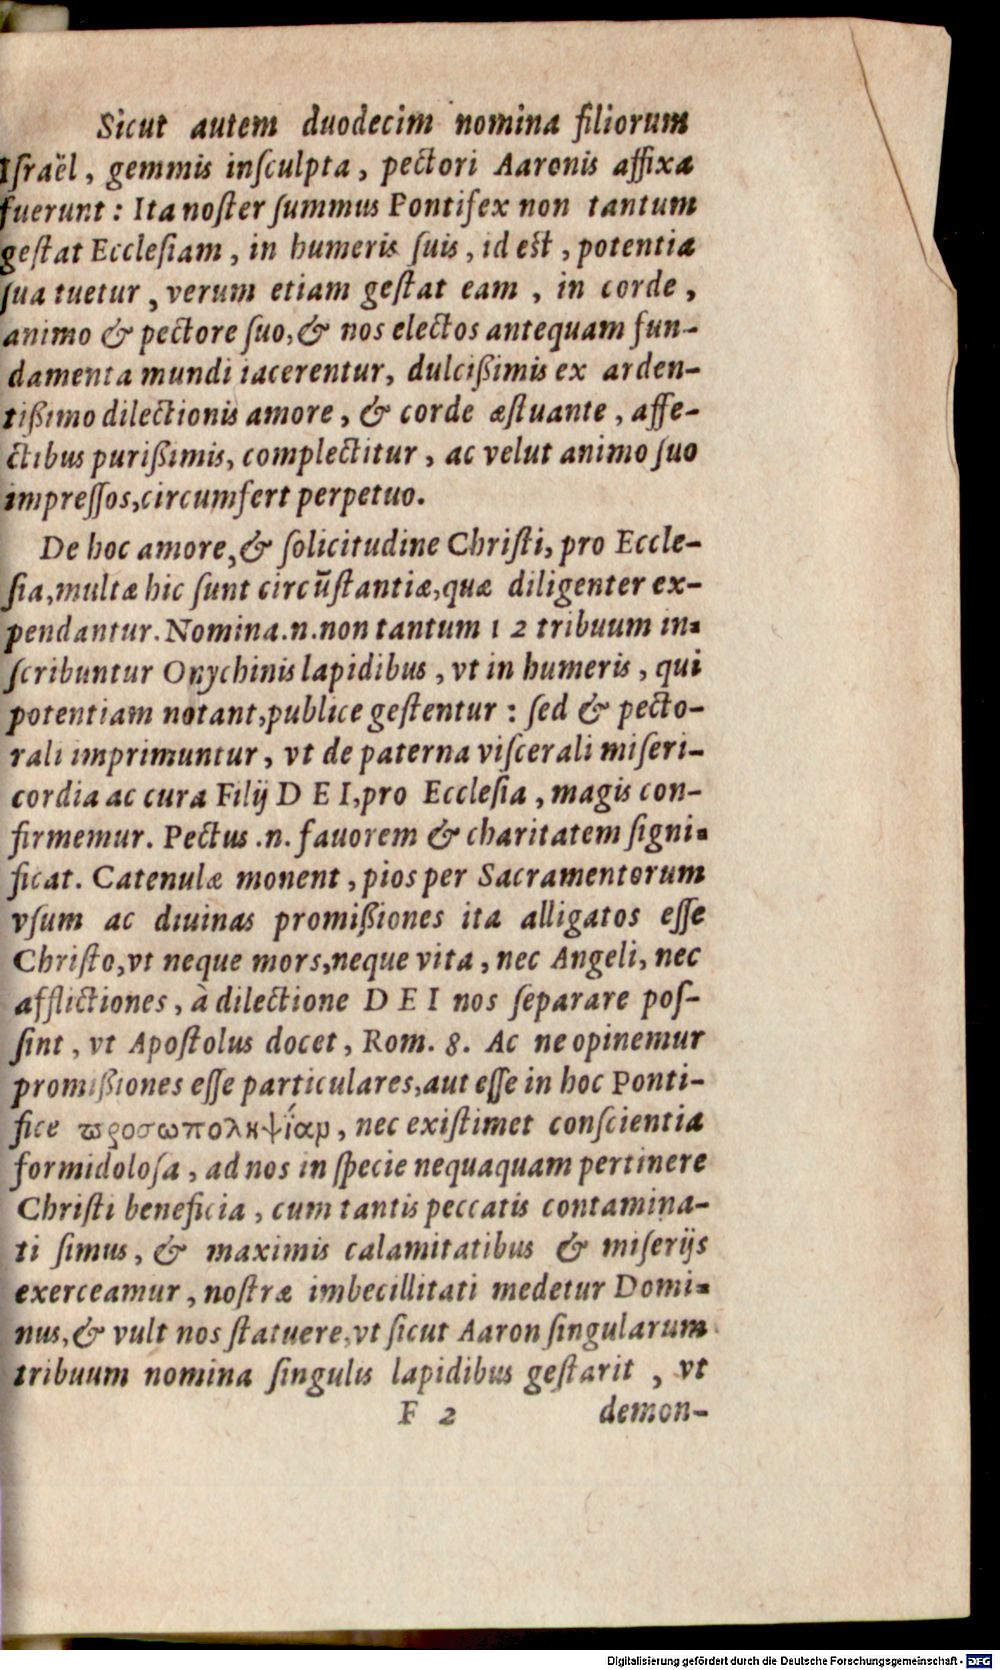 Sicut autem duodecim nomina filiorum
Iſraël, gemmis inſculpta, pectori Aaronis affixa
fuerunt: Ita noſter ſummus Pontifex non tantum
geſtat Eccleſiam, in humeris ſuis, id eſt, potentia
ſua tuetur, verum etiam geſtat eam, in corde,
animo & pectore ſuo, & nos electos antequam fun-
damenta mundi iacerentur, dulcißimis ex arden-
tißimo dilectionis amore, & corde æſtuante, affe-
ctibus purißimis, complectitur, ac velut animo ſuo
impreſſos, circumfert perpetuo.
De hoc amore, & ſolicitudine Chriſti, pro Eccle-
ſia, multæ hic ſunt circūſtantiæ, quæ diligenter ex-
pendantur. Nomina .n. non tantum 12 tribuum in-
ſcribuntur Onychinis lapidibus, vt in humeris, qui
potentiam notant, publice geſtentur: ſed & pecto-
rali imprimuntur, vt de paterna viſcerali miſeri-
cordia ac cura Filij DEI, pro Eccleſia, magis con-
firmemur. Pectus .n. fauorem & charitatem ſigni-
ficat. Catenulæ monent, pios per Sacramentorum
vſum ac diuinas promißiones ita alligatos eſſe
Chriſto, vt neque mors, neque vita, nec Angeli, nec
afflictiones, à dilectione DEI nos ſeparare poſ-
ſint, vt Apoſtolus docet, Rom. 8. Ac ne opinemur
promißiones eſſe particulares, aut eſſe in hoc Ponti-
fice ϖροσωπολκψίαμ, nec exiſtimet conſcientia
formidoloſa, ad nos in ſpecie nequaquam pertinere
Chriſti beneficia, cum tantis peccatis contamina-
ti ſimus, & maximis calamitatibus & miſerijs
exerceamur, noſtræ imbecillitati medetur Domi-
nus, & vult nos ſtatuere, vt ſicut Aaron ſingularum
tribuum nomina ſingulis lapidibus geſtarit, vt
F 2 demon-
Digitalisierung gefördert durch die Deutsche Forschungsgemeinschaft - DFG